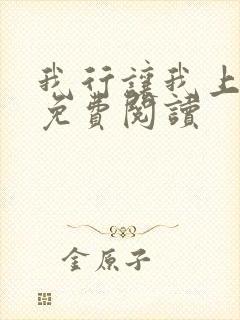 我行讓我上
免費閱讀
金原子